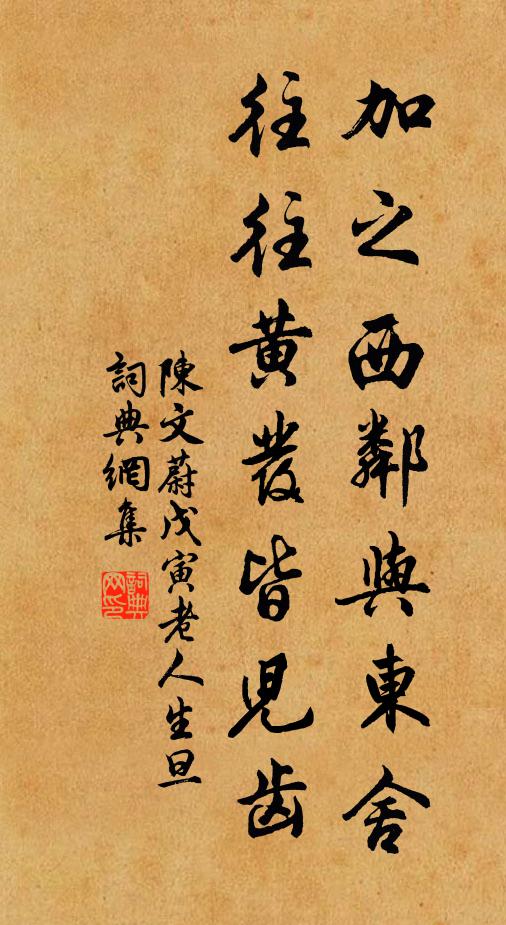 加之西鄰與東舍
往往黃發皆兒齒
陳文蔚戊寅老人生旦
詞典網集
詞典网印